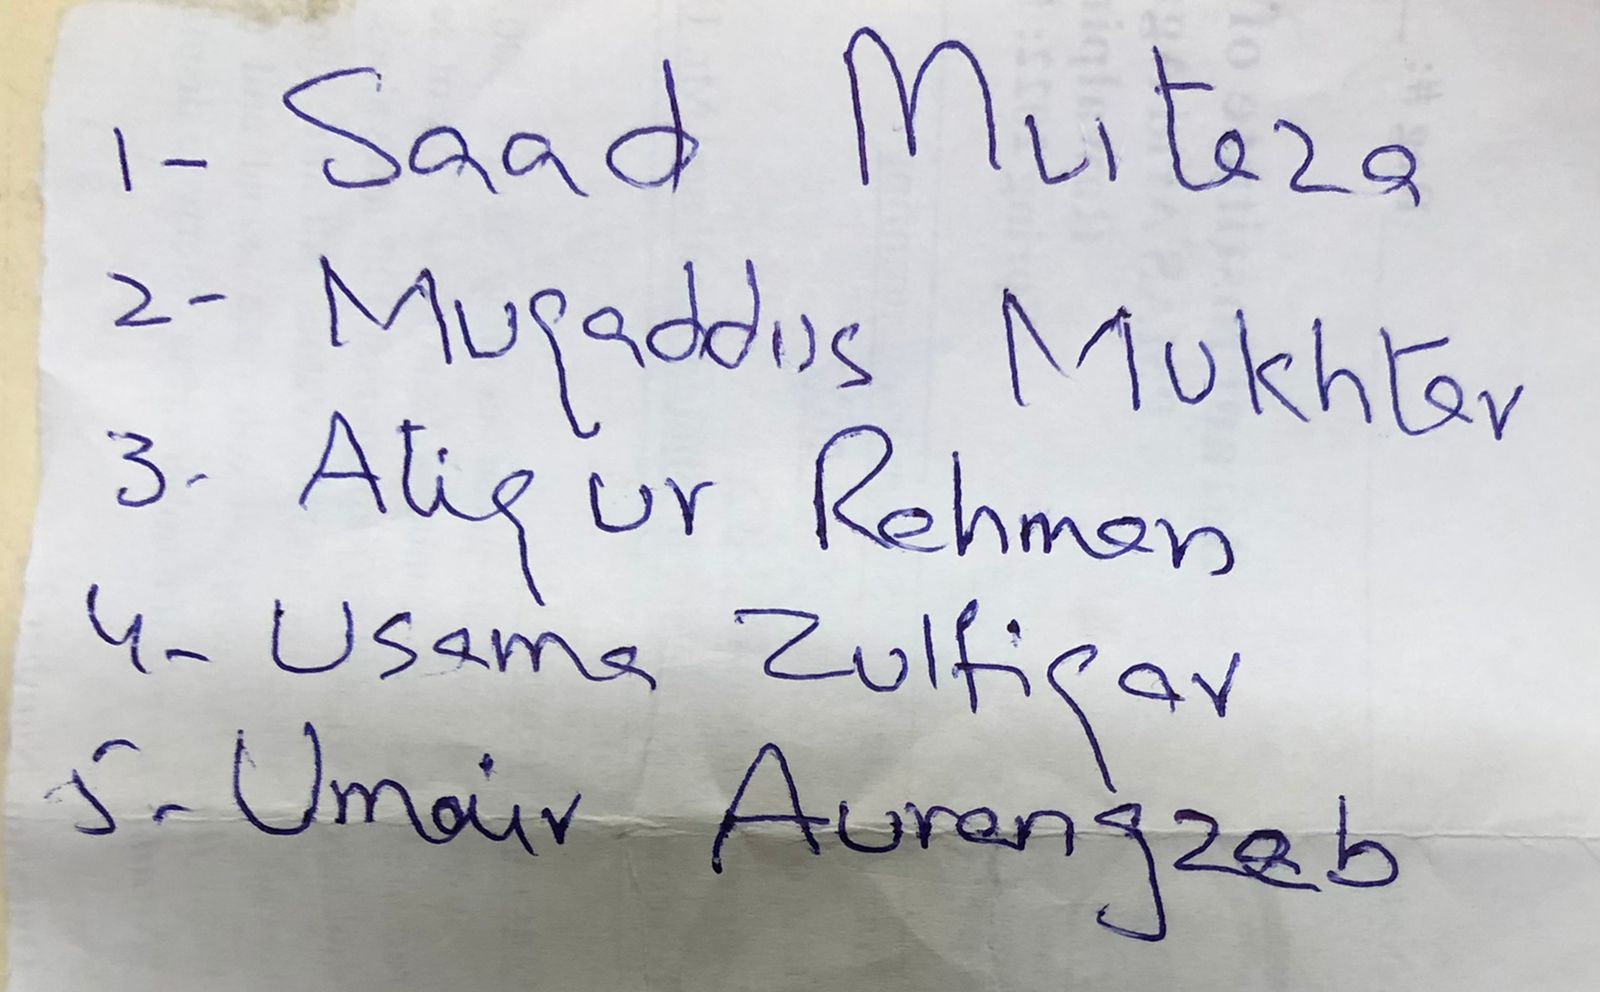 1- Saad Muteza
2- Muqaddus Mukhtar
3- Atiq ur Rehman
4- Usama Zulfiqar
5- Umair Aurangzeb